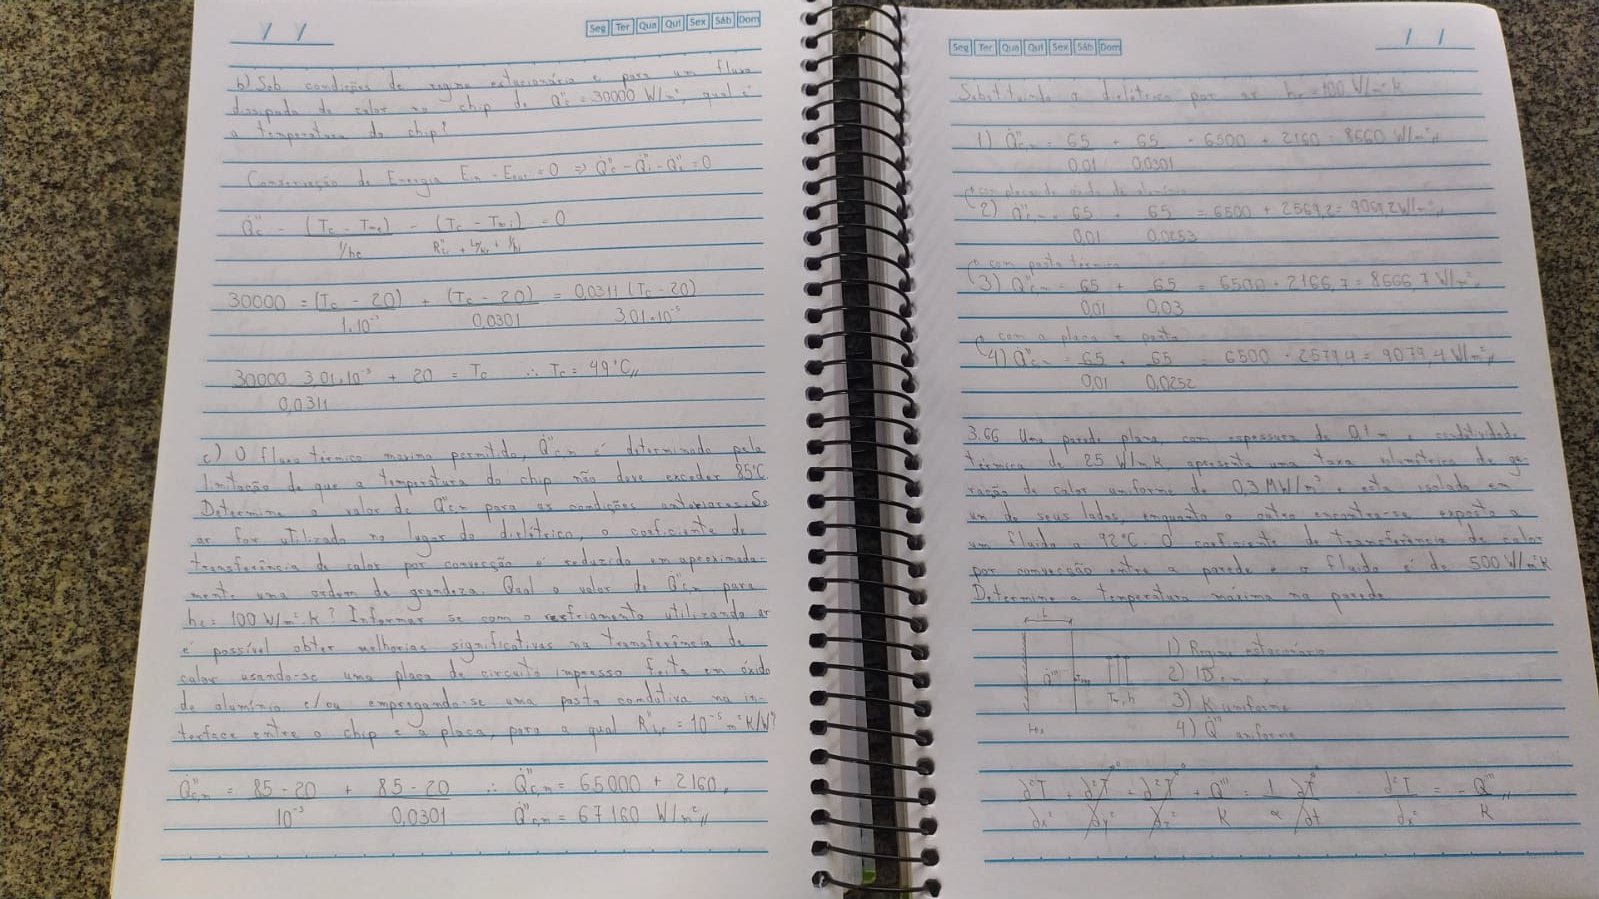 Seg Ter Qua Qui Sex Sáb Dom
b) Sob condições de regime estacionário e para um fluxo
dissipado de calor no chip de Q̇"c = 30000 W/m², qual é
a temperatura do chip?
Conservação de Energia Ein - Eout = 0 ⇒ Q̇"c - Q̇"i - Q̇"e = 0
Q̇"c - (Tc - T∞e) - (Tc - T∞i) = 0
1/he R"tc + L/k + 1/hi
30000 = (Tc - 20) + (Tc - 20) = 0,0311 (Tc - 20)
1.10⁻³ 0,0301 3,01.10⁻⁵
30000 3,01.10⁻⁵ + 20 = Tc ∴ Tc = 49°C
0,0311
c) O fluxo térmico maximo permitido, Q̇"c,m é determinado pela
limitação de que a temperatura do chip não deve exceder 85°C
Determine o valor de Q̇"c,m para as condições anteriores. Se
ar for utilizado no lugar do dielétrico, o coeficiente de
transferência de calor por convecção é reduzido em aproximada-
mente uma ordem de grandeza. Qual o valor de Q̇"c,m para
he = 100 W/m²·K? Informar se com o resfriamento utilizando ar
é possível obter melhorias significativas na transferência de
calor usando-se uma placa de circuito impresso feita em óxido
de alumínio e/ou empregando-se uma pasta condutiva na in-
terface entre o chip e a placa, para a qual R"t,c = 10⁻⁵ m²K/W?
Q̇"c,m = 85 - 20 + 85 - 20 ∴ Q̇"c,m = 65000 + 2160
10⁻³ 0,0301 Q̇"c,m = 67160 W/m²
Seg Ter Qua Qui Sex Sáb Dom
Substituindo o dielétrico por ar he = 100 W/m²K
1) Q̇"c,m = 65 + 65 = 6500 + 2160 = 8660 W/m²
0,01 0,0301
com placa de óxido de alumínio
2) Q̇"c,m = 65 + 65 = 6500 + 2569,2 = 9069,2 W/m²
0,01 0,0253
com pasta térmica
3) Q̇"c,m = 65 + 65 = 6500 + 2166,7 = 8666,7 W/m²
0,01 0,03
com a placa e pasta
4) Q̇"c,m = 65 + 65 = 6500 + 2579,4 = 9079,4 W/m²
0,01 0,0252
3.66 Uma parede plana, com espessura de 0,1 m e condutividade
térmica de 25 W/mK, apresenta uma taxa volumétrica de ge-
ração de calor uniforme de 0,3 MW/m³ e esta isolada em
um de seus lados, enquanto o outro encontra-se exposto a
um fluido a 92°C. O coeficiente de transferência de calor
por convecção entre a parede e o fluido é de 500 W/m²K
Determine a temperatura máxima na parede.
L
1) Regime estacionário
Q̇''' 2) 1D em x
T∞, h 3) K uniforme
4) Q̇''' uniforme
∂²T + ∂²T + ∂²T + Q̇''' = 1 ∂T ∂²T = - Q̇'''
∂x² ∂y² ∂z² K α ∂t ∂x² K